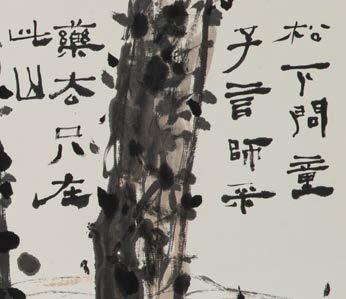 松下問童
子言師采
藥去只在
此山